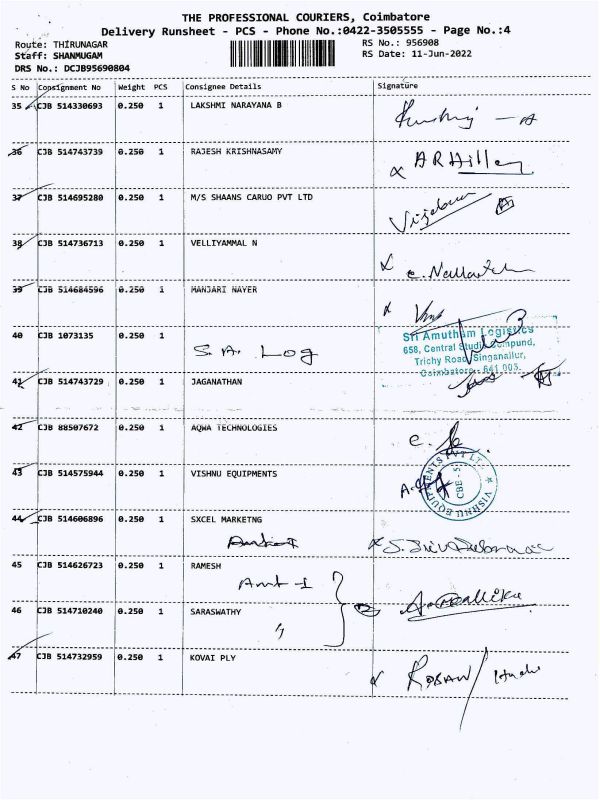 THE PROFESSIONAL COURIERS, Coimbatore
Delivery Runsheet - PCS - Phone No.:0422-3505555 - Page No.:4
Route: THIRUNAGAR RS No.: 956908
Staff: SHANMUGAM RS Date: 11-Jun-2022
DRS No.: DCJB95690804
S No Consignment No Weight PCS Consignee Details Signature
35 CJB 514330693 0.250 1 LAKSHMI NARAYANA B
36 CJB 514743739 0.250 1 RAJESH KRISHNASAMY
37 CJB 514695280 0.250 1 M/S SHAANS CARUO PVT LTD
38 CJB 514736713 0.250 1 VELLIYAMMAL N
39 CJB 514684596 0.250 1 MANJARI NAYER
40 CJB 1073135 0.250 1
S.A. Log
Sri Amutham Logistics
658, Central Studio Compund,
Trichy Road, Singanallur,
Coimbatore - 641 005.
41 CJB 514743729 0.250 1 JAGANATHAN
42 CJB 88507672 0.250 1 AQWA TECHNOLOGIES
43 CJB 514575944 0.250 1 VISHNU EQUIPMENTS
VISHNU EQUIPMENTS PVT LTD
CBE - 5
44 CJB 514606896 0.250 1 SXCEL MARKETNG
45 CJB 514626723 0.250 1 RAMESH
46 CJB 514710240 0.250 1 SARASWATHY
A. Mallika
47 CJB 514732959 0.250 1 KOVAI PLY